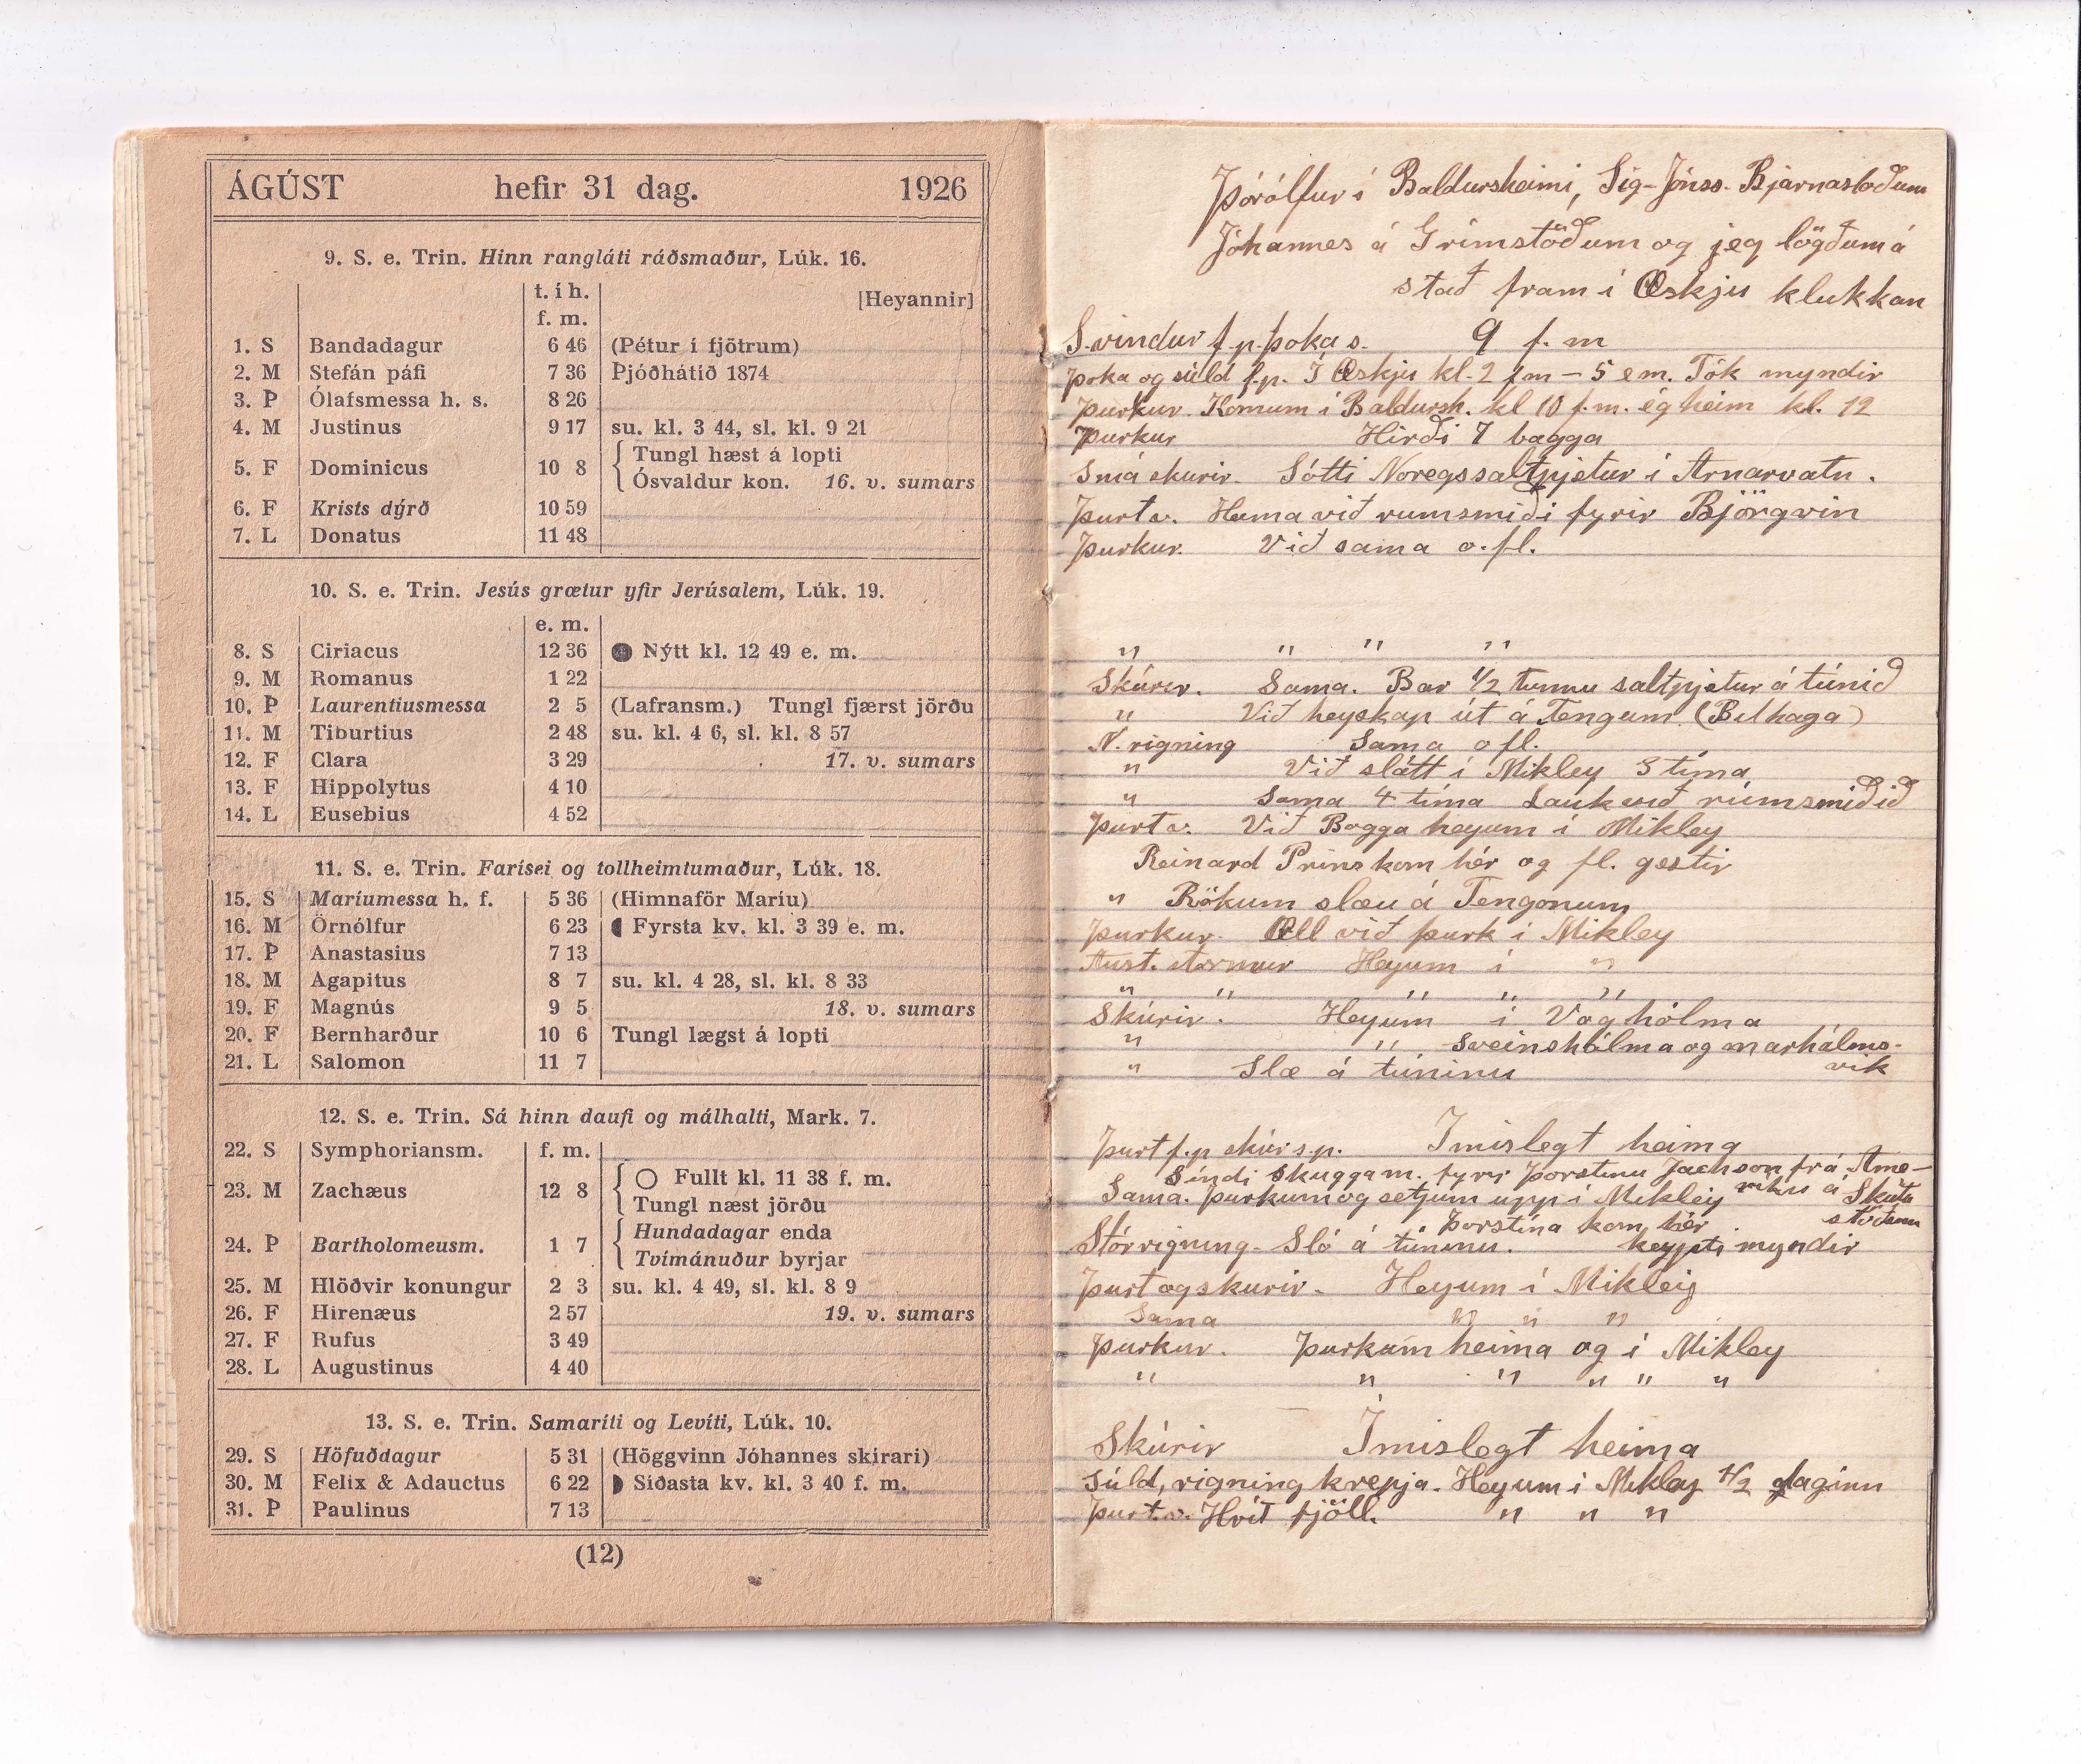 ÁGÚST hefir 31 dag. 1926
9. S. e. Trin. Hinn rangláti ráðsmaður, Lúk. 16.
t. í h. [Heyannir]
f. m.
1. S Bandadagur 6 46 (Pétur í fjötrum)
2. M Stefán páfi 7 36 Þjóðhátíð 1874
3. Þ Ólafsmessa h. s. 8 26
4. M Justinus 9 17 su. kl. 3 44, sl. kl. 9 21
5. F Dominicus 10 8 Tungl hæst á lopti
Ósvaldur kon. 16. v. sumars
6. F Krists dýrð 10 59
7. L Donatus 11 48
10. S. e. Trin. Jesús grætur yfir Jerúsalem, Lúk. 19.
e. m.
8. S Ciriacus 12 36 Nýtt kl. 12 49 e. m.
9. M Romanus 1 22
10. Þ Laurentiusmessa 2 5 (Lafransm.) Tungl fjærst jörðu
11. M Tiburtius 2 48 su. kl. 4 6, sl. kl. 8 57
12. F Clara 3 29 17. v. sumars
13. F Hippolytus 4 10
14. L Eusebius 4 52
11. S. e. Trin. Farísei og tollheimtumaður, Lúk. 18.
15. S Maríumessa h. f. 5 36 (Himnaför Maríu)
16. M Örnólfur 6 23 Fyrsta kv. kl. 3 39 e. m.
17. Þ Anastasius 7 13
18. M Agapitus 8 7 su. kl. 4 28, sl. kl. 8 33
19. F Magnús 9 5 18. v. sumars
20. F Bernharður 10 6 Tungl lægst á lopti
21. L Salomon 11 7
12. S. e. Trin. Sá hinn daufi og málhalti, Mark. 7.
22. S Symphoriansm. f. m.
23. M Zachæus 12 8 Fullt kl. 11 38 f. m.
Tungl næst jörðu
24. Þ Bartholomeusm. 1 7 Hundadagar enda
Tvímánuður byrjar
25. M Hlöðvir konungur 2 3 su. kl. 4 49, sl. kl. 8 9
26. F Hirenæus 2 57 19. v. sumars
27. F Rufus 3 49
28. L Augustinus 4 40
13. S. e. Trin. Samaríti og Levíti, Lúk. 10.
29. S Höfuðdagur 5 31 (Höggvinn Jóhannes skírari)
30. M Felix & Adauctus 6 22 Síðasta kv. kl. 3 40 f. m.
31. Þ Paulinus 7 13
(12)
Þórólfur í Baldursheimi, Sig-Jónss. Bjarnastöðum
Jóhannes á Grímstöðum og jeg lögðum á
stað fram í Öskju klukkan
S.vindur f.p. þoka s. 9 f. m
Þoka og súld f.p. Í Öskju kl. 2 fm - 5 em. Tók myndir
Þurkur. Komum í Baldursh. kl 10 f.m. ég heim kl. 12
Þurkur Hirði 7 bagga
Smá skurir. Sótti Noregssaltpjetur í Arnarvatn.
Þurt v. Heima við rumsmiði fyrir Björgvin
Þurkur. Við sama o. fl.
" " " "
Skúrir. Sama. Bar 1/2 tunnu saltpjetur á túnið
" Við heyskap út á Tengum (Belhaga)
N. rigning Sama o fl.
" Við slátt í Mikley 3 tíma
" Sama 4 tíma Lauk við rúmsmiðið
Þurt v. Við Bogga heyum í Mikley
Reinard Prins kom hér og fl. gestir
" Rökum slæu á Tengonum
Þurkur. Öll við þurk í Mikley
Aust. stormur Heyum í "
" " " " "
Skúrir. Heyum í Vaghólma
" " Sveinshólma og marhálms-
vik
" Slæ á túninu
Þurt f.p skúrs.p. Ímislegt heima
Síndi skuggam. fyrir Þorstinu Jackson frá Ame-
ríku á Skútu
stöðum
Sama. Þurkum og setjum upp í Mikley
Þorstína kom hér
Stórrigning. Sló á túninu. keypti myndir
Þurt og skurir. Heyum í Mikley
Sama " " "
Þurkur. Þurkum heima og í Mikley
" " " " " "
Skúrir Ímislegt heima
Súld, rigning krepja. Heyum í Mikley 1/2 daginn
Þurt v. Hvít fjöll. " " "